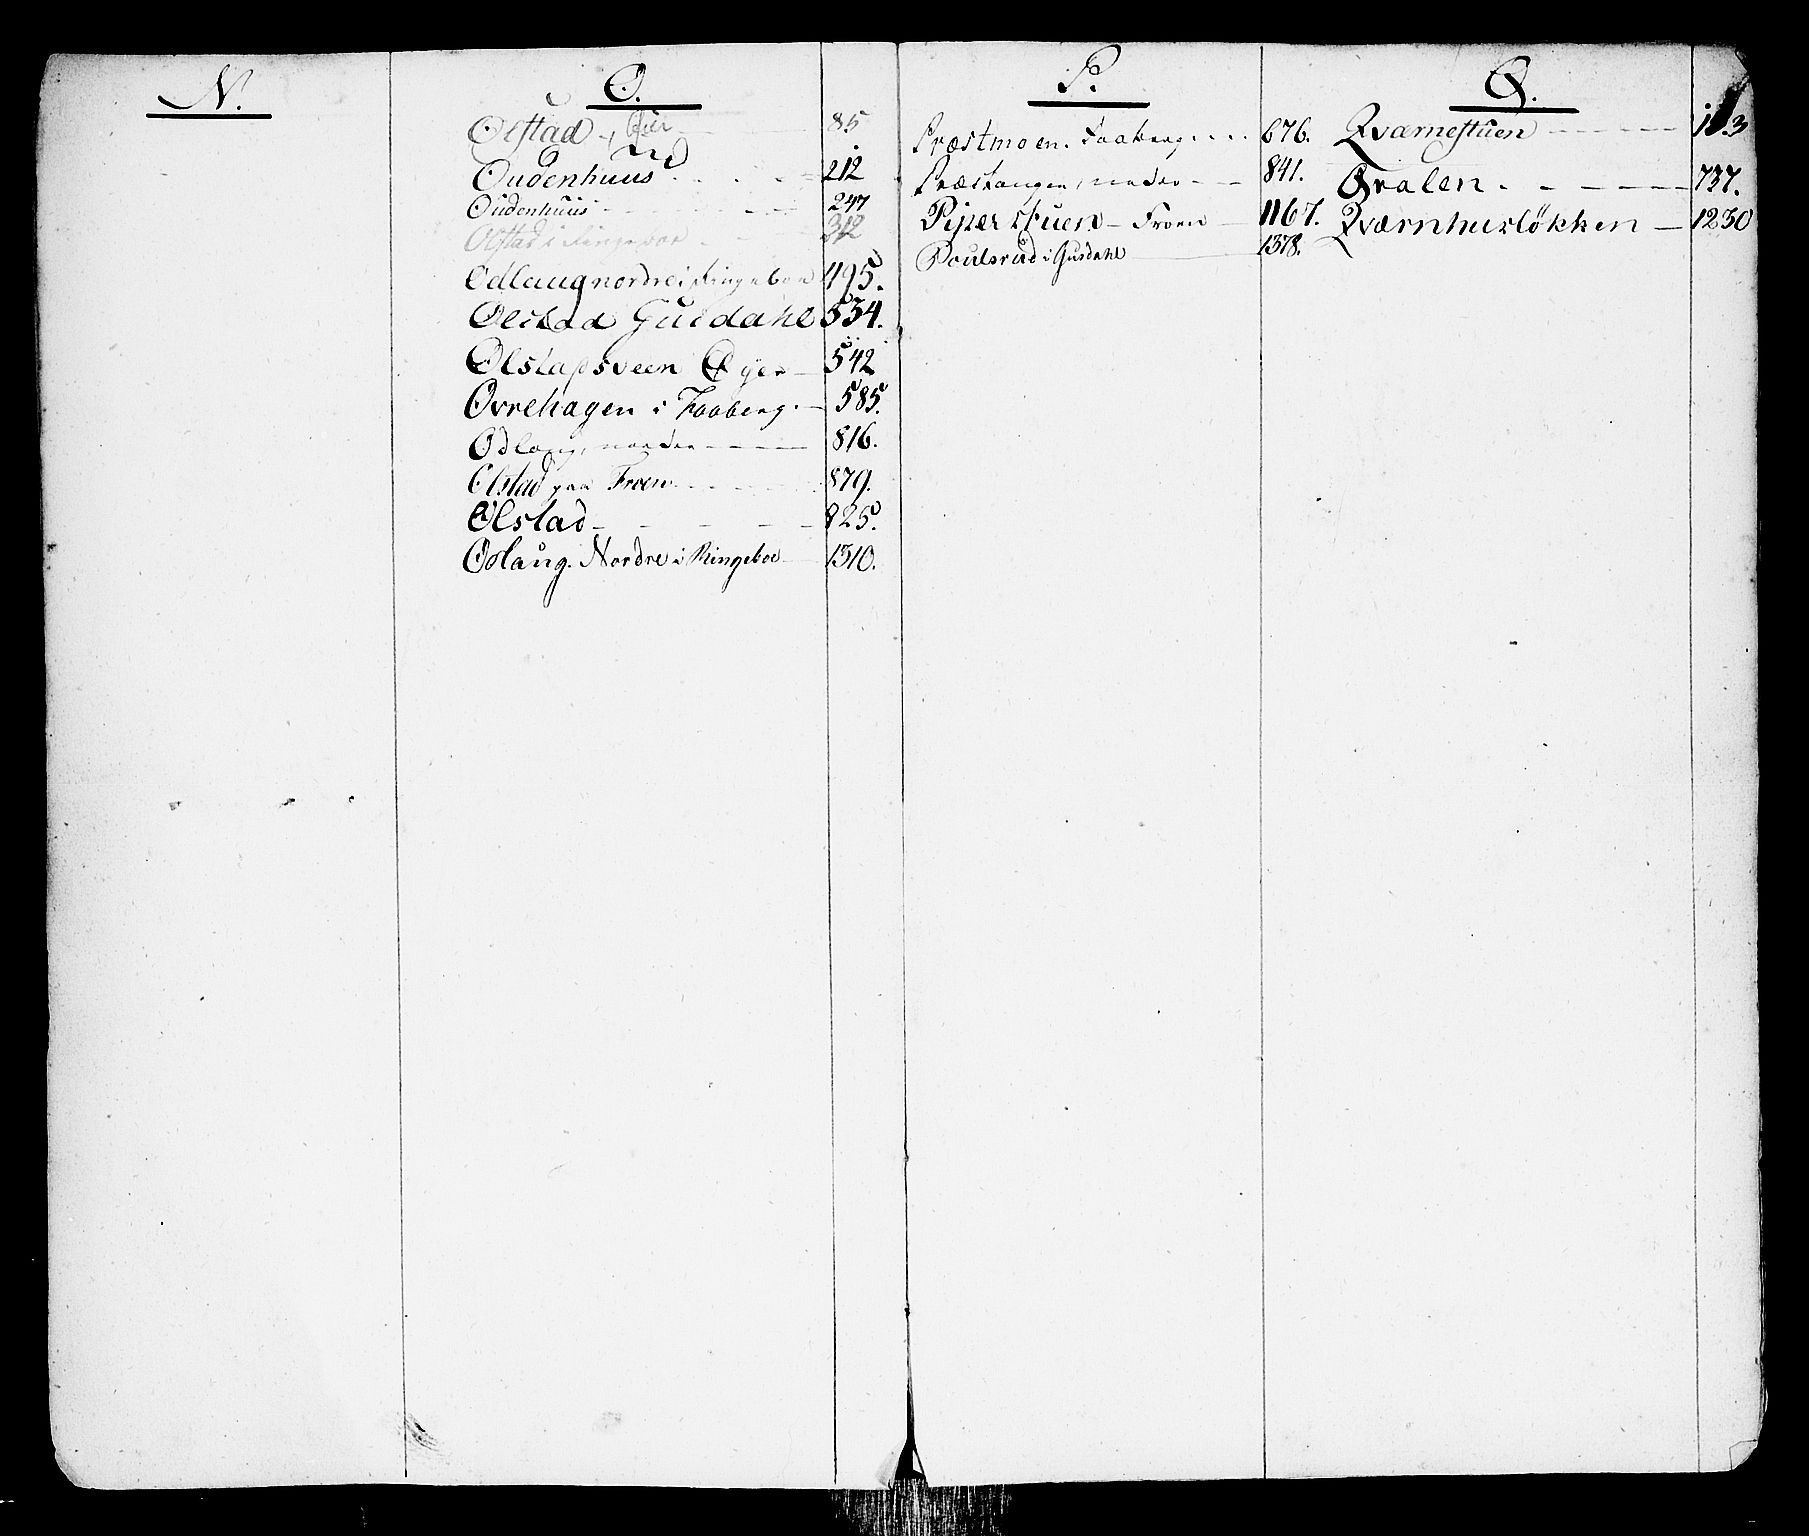 N.
O.
Olstad, Öier 85
Oudenhuus 212
Oudenhuus 247
Olstad i Ringeboe 312
Odlaug nordre i Ringeboe 495.
Olstad Gusdahl 534.
Olstadsveen Öyer 542
Ovrehagen i Faaberg. 585.
Odlaug, nordre 816.
Olstad paa Froen 879.
Olstad 825.
Odlaug. Nordre i Ringeboe 1310.
P.
Præstmoen. Faaberg 676.
Præstangen, nedre 841.
Piperstuen Froen 1167.
Poulsrud i Gusdahl 1378.
Q.
Qværnestuen
Qvalen 737.
Qværnhusløkken 1230